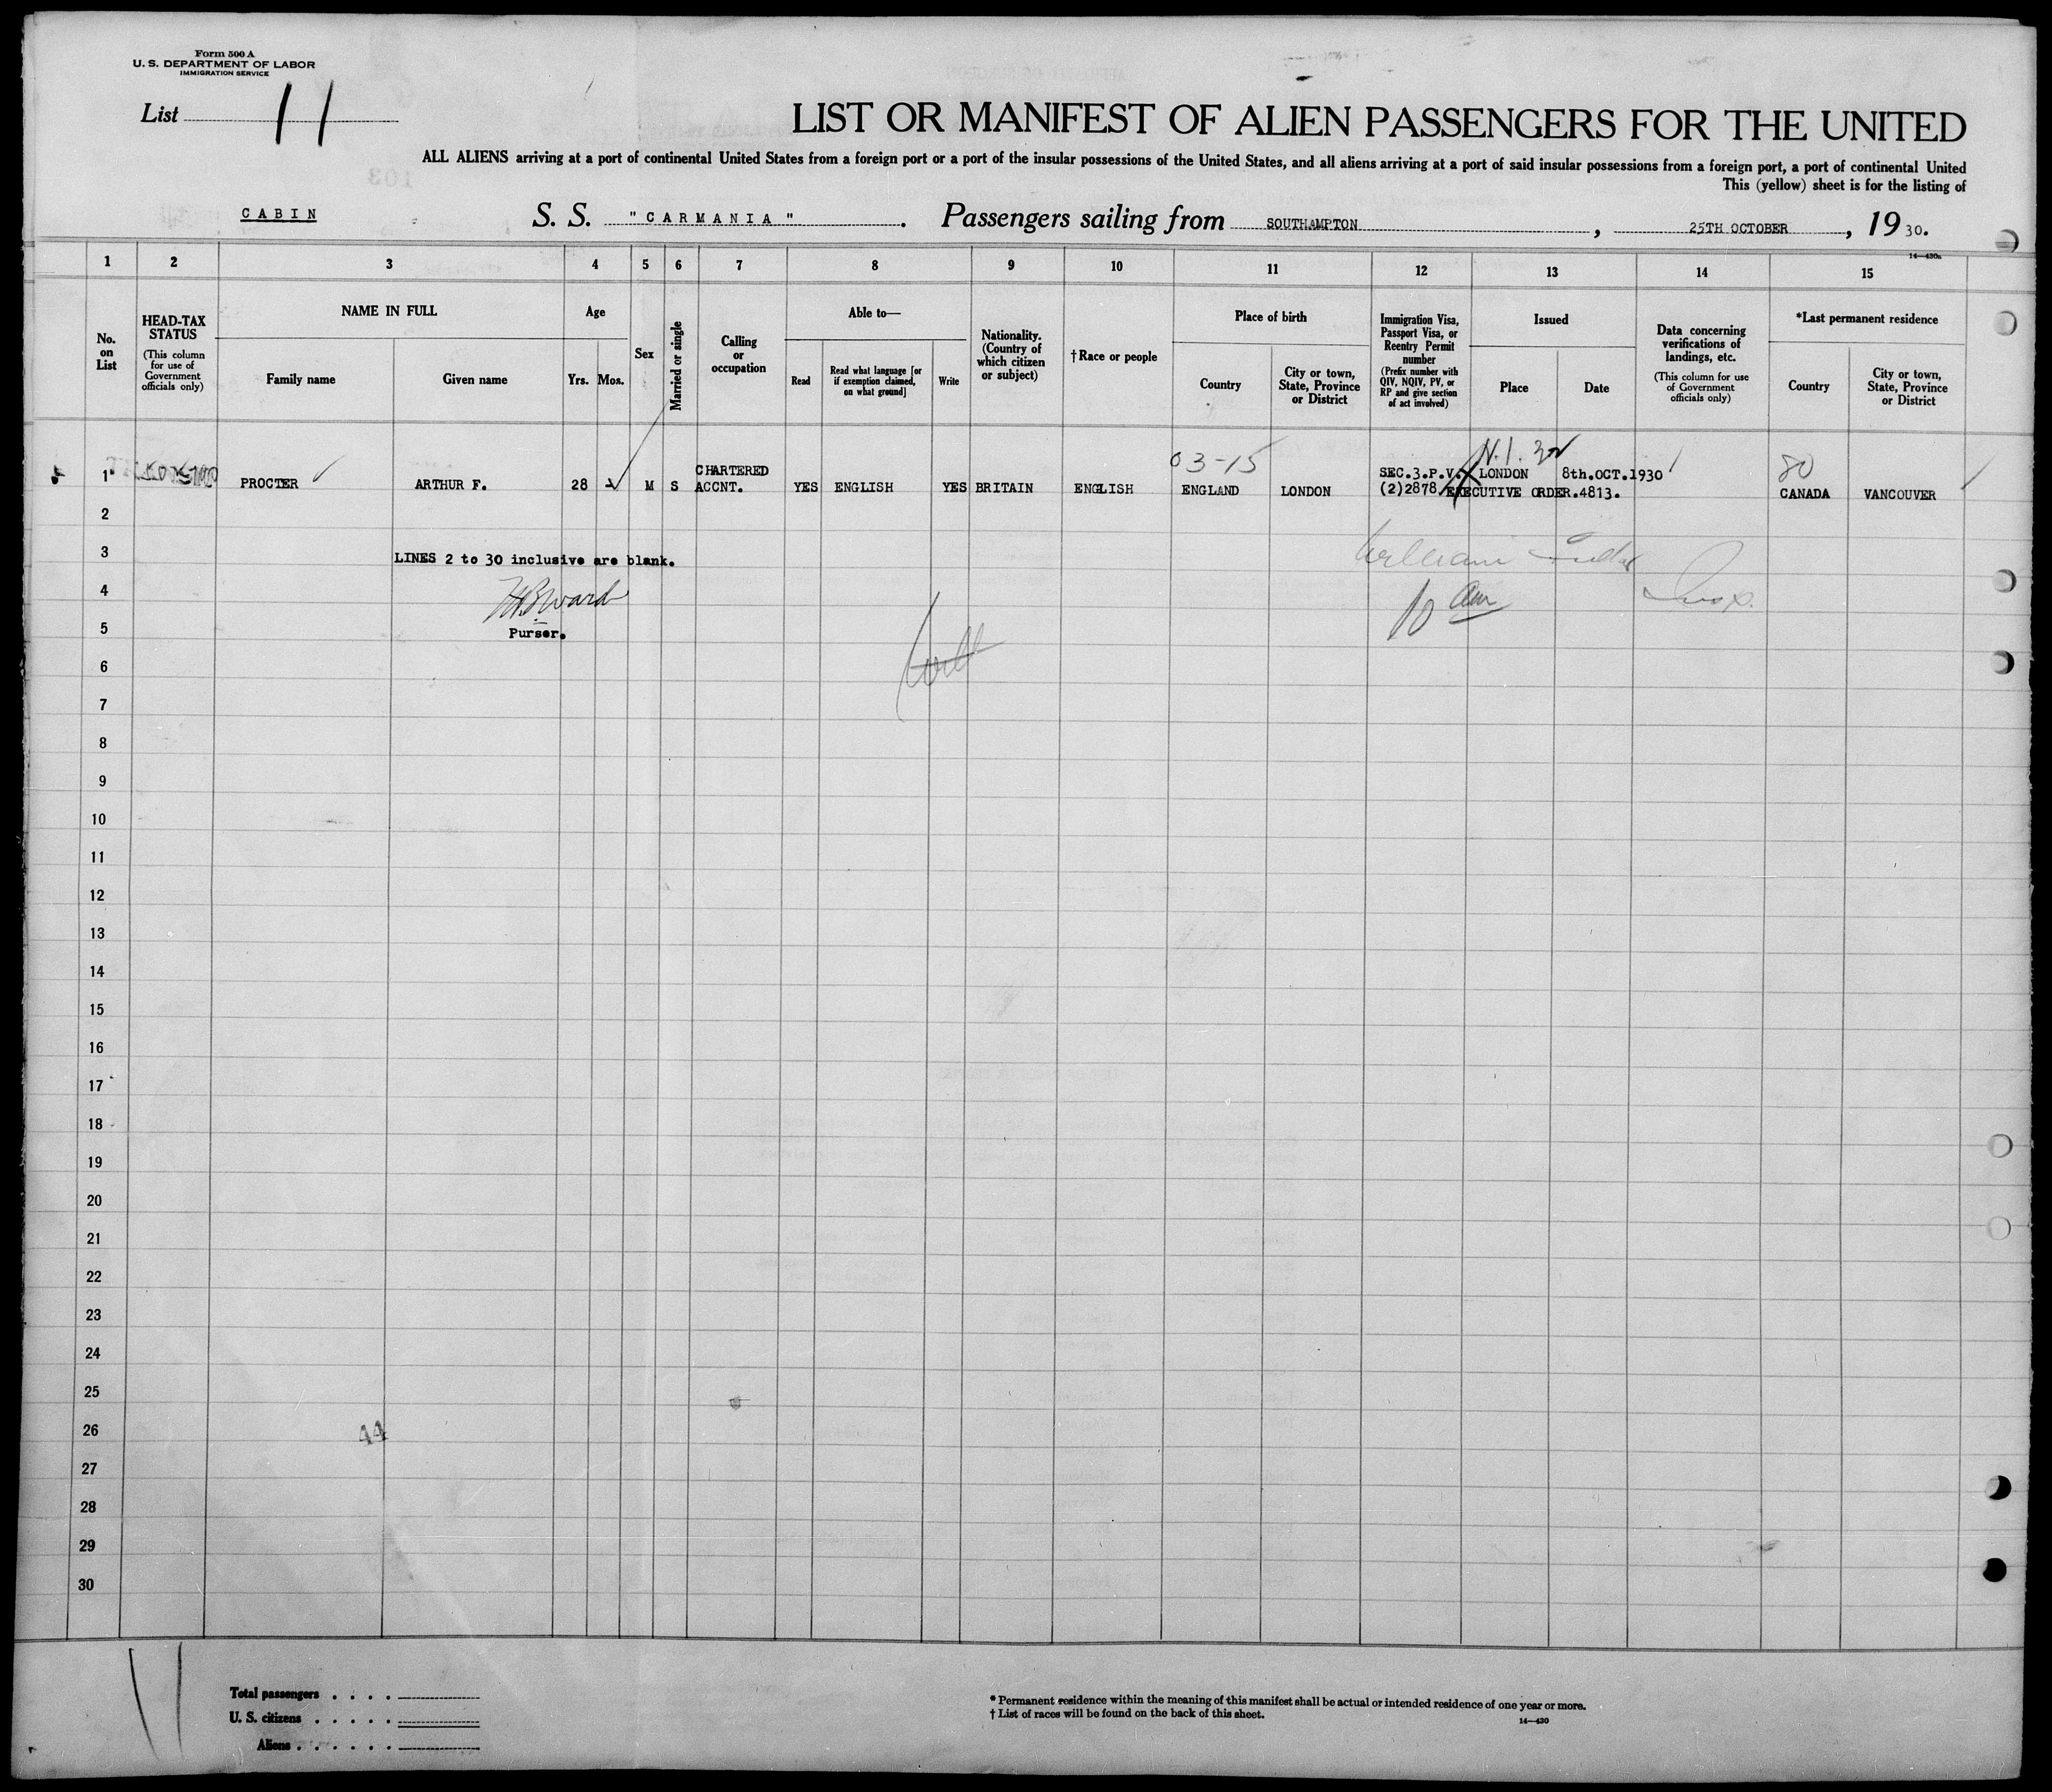 Form 500 A
U. S. DEPARTMENT OF LABOR
IMMIGRATION SERVICE
List 11
LIST OR MANIFEST OF ALIEN PASSENGERS FOR THE UNITED
ALL ALIENS arriving at a port of continental United States from a foreign port or a port of the insular possessions of the United States, and all aliens arriving at a port of said insular possessions from a foreign port, a port of continental United
This (yellow) sheet is for the listing of
CABIN S. S. "CARMANIA". Passengers sailing from SOUTHAMPTON, 25TH OCTOBER, 19 30.
14—430a
1 2 3 4 5 6 7 8 9 10 11 12 13 14 15
No. on List
HEAD-TAX STATUS
(This column for use of Government officials only)
NAME IN FULL
Family name
Given name
Age
Yrs. Mos.
Sex
Married or single
Calling or occupation
Able to—
Read
Read what language [or if exemption claimed, on what ground]
Write
Nationality. (Country of which citizen or subject)
† Race or people
Place of birth
Country
City or town, State, Province or District
Immigration Visa, Passport Visa, or Reentry Permit number
(Prefix number with QIV, NQIV, PV, or RP and give section of act involved)
Issued
Place
Date
Data concerning verifications of landings, etc.
(This column for use of Government officials only)
*Last permanent residence
Country
City or town, State, Province or District
03-15
80
1 PROCTER ARTHUR F. 28 M S CHARTERED ACCNT. YES ENGLISH YES BRITAIN ENGLISH ENGLAND LONDON SEC.3.P.V. LONDON 8th.OCT.1930 CANADA VANCOUVER
(2)2878. EXECUTIVE ORDER.4813.
2
3 LINES 2 to 30 inclusive are blank.
William
4 10 am
Insp.
5 Purser.
6
7
8
9
10
11
12
13
14
15
16
17
18
19
20
21
22
23
24
25
26 44
27
28
29
30
11
Total passengers . . . .
U. S. citizens . . . . .
Aliens . . . . . .
* Permanent residence within the meaning of this manifest shall be actual or intended residence of one year or more.
† List of races will be found on the back of this sheet.
14—430